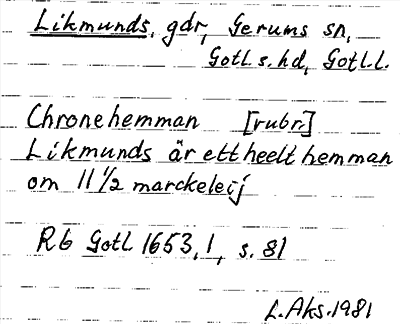 Likmunds, gdr, Gerums sn,
Gotl. s. hd, Gotl. l.
Chronehemman [rubr.]
Likmunds är ett heelt hemman
om 11 1/2 marckeleij
Rb Gotl 1653, 1, s. 81
L. Aks. 1981